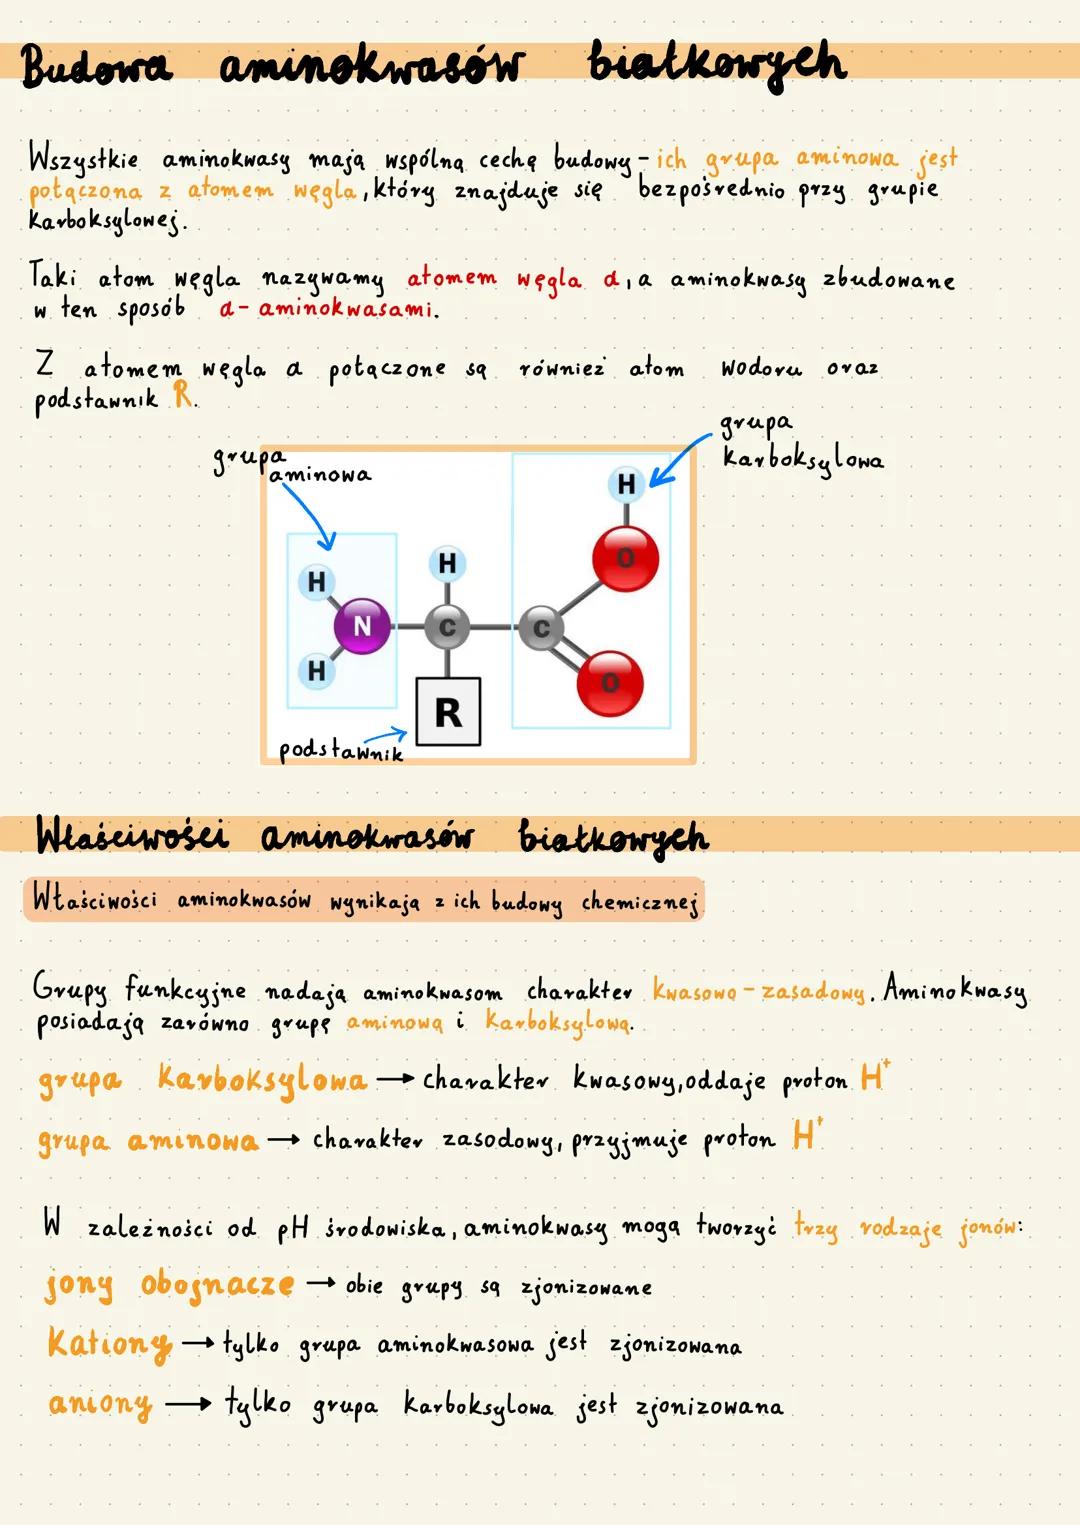 Budowa aminokwasów białkowych
Wszystkie aminokwasy mają wspólną cechę budowy - ich grupa aminowa jest
połączona z atomem węgla, który znajduje się bezpośrednio przy grupie
karboksylowej.
Taki atom węgla nazywamy atomem węgla α, a aminokwasy zbudowane
w ten sposób α- aminokwasami.
Z atomem węgla α połączone są również atom wodoru oraz
podstawnik R.
grupa
aminowa
grupa
karboksylowa
H
H
H
O
N
C
C
H
O
R
podstawnik
Właściwości aminokwasów białkowych
Właściwości aminokwasów wynikają z ich budowy chemicznej
Grupy funkcyjne nadają aminokwasom charakter kwasowo-zasadowy. Aminokwasy
posiadają zarówno grupę aminową i karboksylową.
grupa karboksylowa → charakter kwasowy, oddaje proton H⁺
grupa aminowa → charakter zasodowy, przyjmuje proton H⁺
W zależności od pH środowiska, aminokwasy mogą tworzyć trzy rodzaje jonów:
jony obojnacze → obie grupy są zjonizowane
Kationy → tylko grupa aminokwasowa jest zjonizowana
aniony → tylko grupa karboksylowa jest zjonizowana